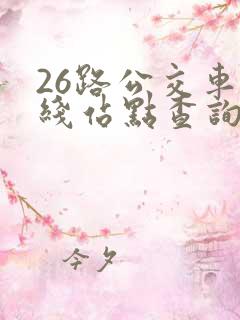 26路公交車
綫佔點查詢
今夕